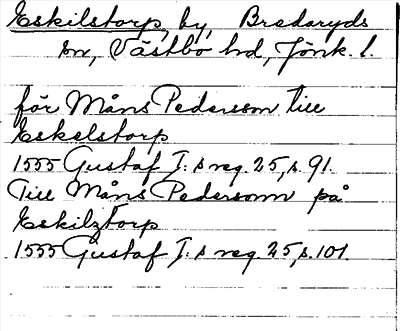 Eskilstorp, by, Bredaryds
sn, Västbo hd, Jönk. l.
för Måns Pedersson till
Eskelstorp
1555 Gustaf I:s reg. 25, s. 91.
Till Måns Pedersonn på
Eskilztorp
1555 Gustaf I:s reg. 25, s. 101.